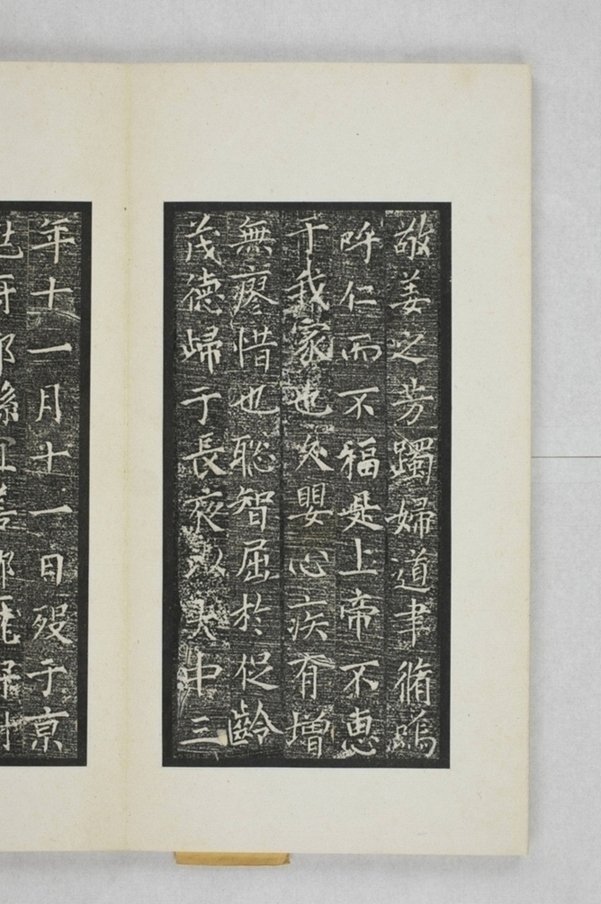 敬姜之芳躅婦道聿脩嗚
呼仁而不福是上帝不惠
于我家也夾嬰心疾有增
無瘳惜也聡智屈於促齡
茂德歸于長夜以大中三
年十一月十一日殁于京